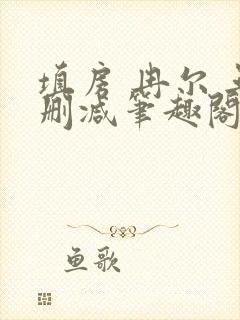 填房 冉尔 无
删减笔趣阁
鱼歌